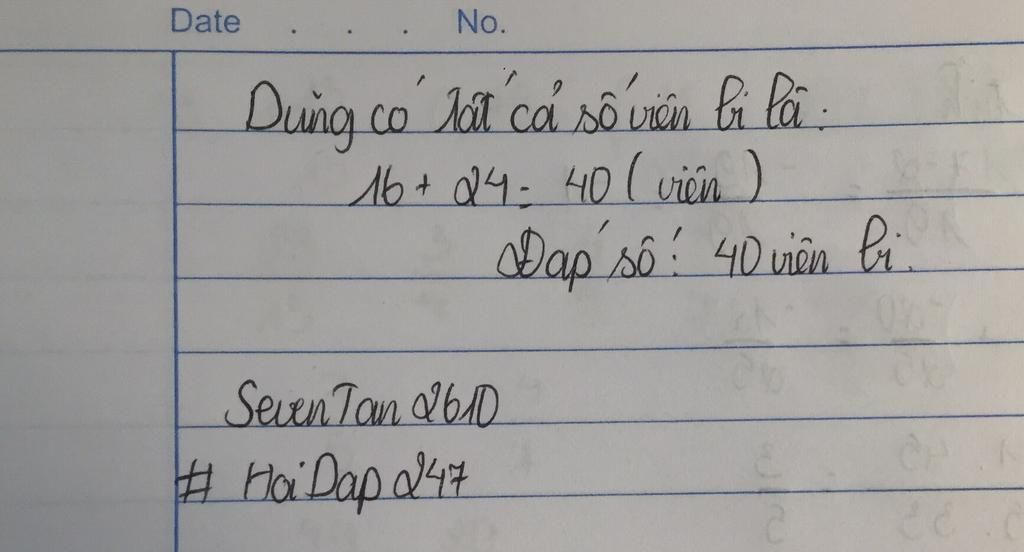 Date . . . No.
Dũng có tất cả số viên bi là:
16 + 24 = 40 (viên)
Đáp số: 40 viên bi.
SevenTan2610
# HoiDap247